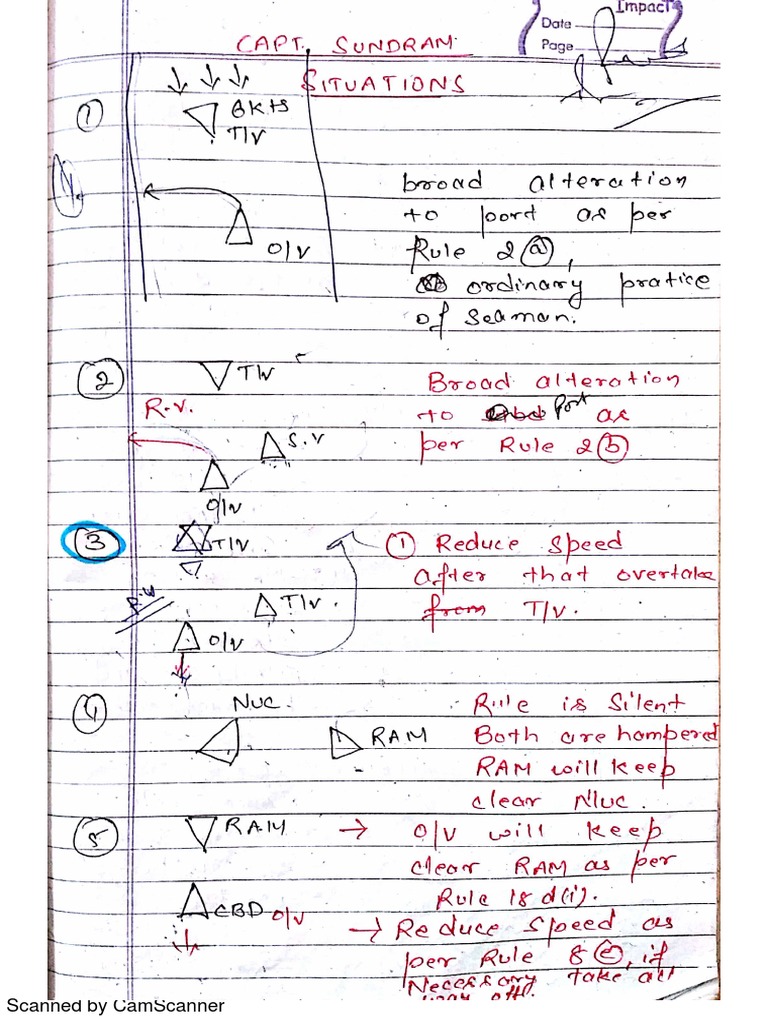 Impact
Date
Page
CAPT. SUNDRAM
SITUATIONS
①
8 Kts
T/V
O/V
broad alteration
to port as per
Rule 2 ⓐ,
ordinary pratice
of seaman.
②
T/V
R.V.
S.V
O/V
Broad alteration
to Port as
per Rule 2ⓑ
③
T/V
T/V.
O/V
① Reduce Speed
after that overtake
from T/V.
④
NUC
RAM
Rule is Silent
Both are hampered
RAM will keep
clear NUC.
⑤
RAM
→ O/V will keep
clear RAM as per
Rule 18 d(i).
CBD O/V
→ Reduce Speed as
per Rule 8 ⓔ, if
Necessary take all
way off.
Scanned by CamScanner